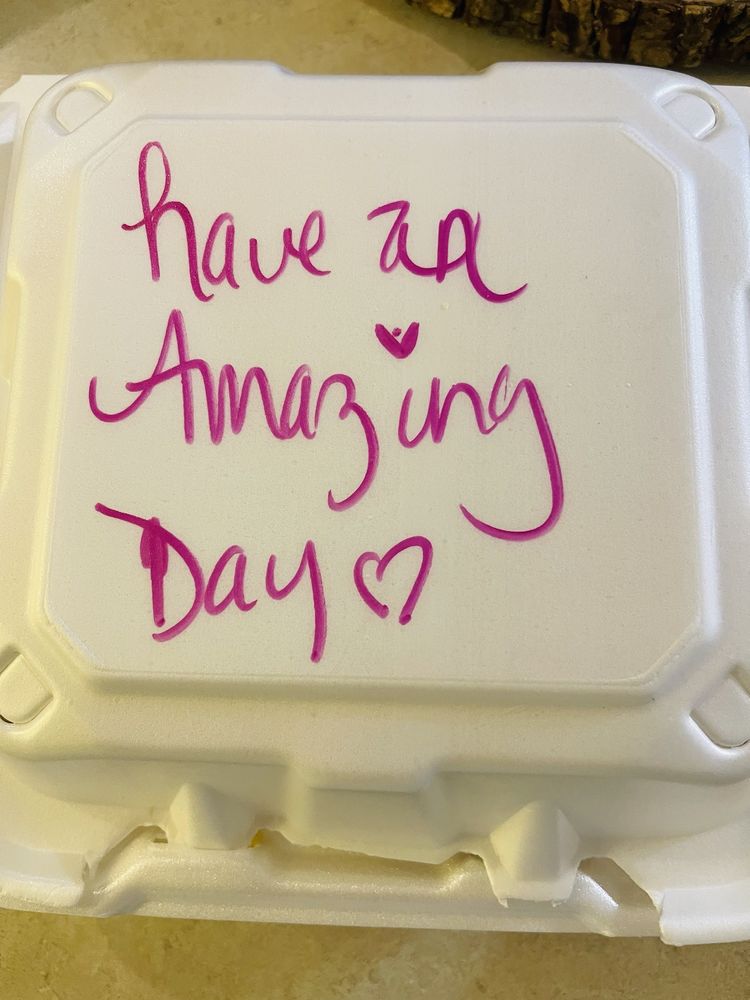 have an
Amazing
Day ♡